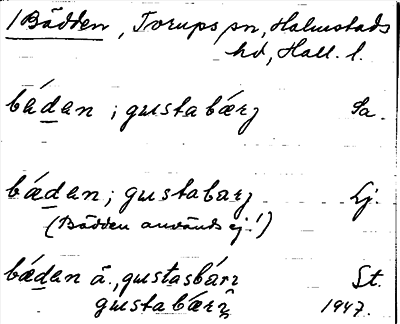 /Bädden, Torups sn, Halmstads
hd, Hall. l.
bǽdan ; gustabærʒ Sa.
bǽdan ; gustabarʒ Lj.
(Bädden används ej!)
bǽdan ä., gustasbárʒ St.
gustabǽrʒ 1947.